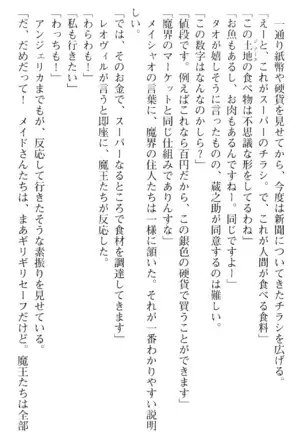 一通り紙幣や硬貨を見せてから、今度は新聞についてきたチラシを広げる。
「えーと、これがスーパーのチラシ。で、これが人間が食べる食料」
「この土地の食べ物は不思議な形をしてるわね」
「お魚もあるし、お肉もあるんですねー。同じですよー」
タオが嬉しそうに言ったものの、蔵之助が同意するのは難しい。
「この数字はなんなのかしら？」
「値段です。例えばこれなら百円だから、この銀色の硬貨で買うことができます」
「魔界のマーケットと同じ仕組みでありんすな」
メイシャオの言葉に、魔界の住人たちは一様に頷いた。それが一番わかりやすい説明
らしい。
「では、そのお金で、スーパーなるところで食材を調達してきます」
レオヴィルが言うと即座に、魔王たちが反応した。
「わらわも！」
「私も行きたい」
「わっちもカ」
アンジェリカまでもが、反応して行きたそうな素振りを見せている。
「だ、だめだって！　メイドさんたちは、まあギリギリセーフだけど。魔王たちは全部